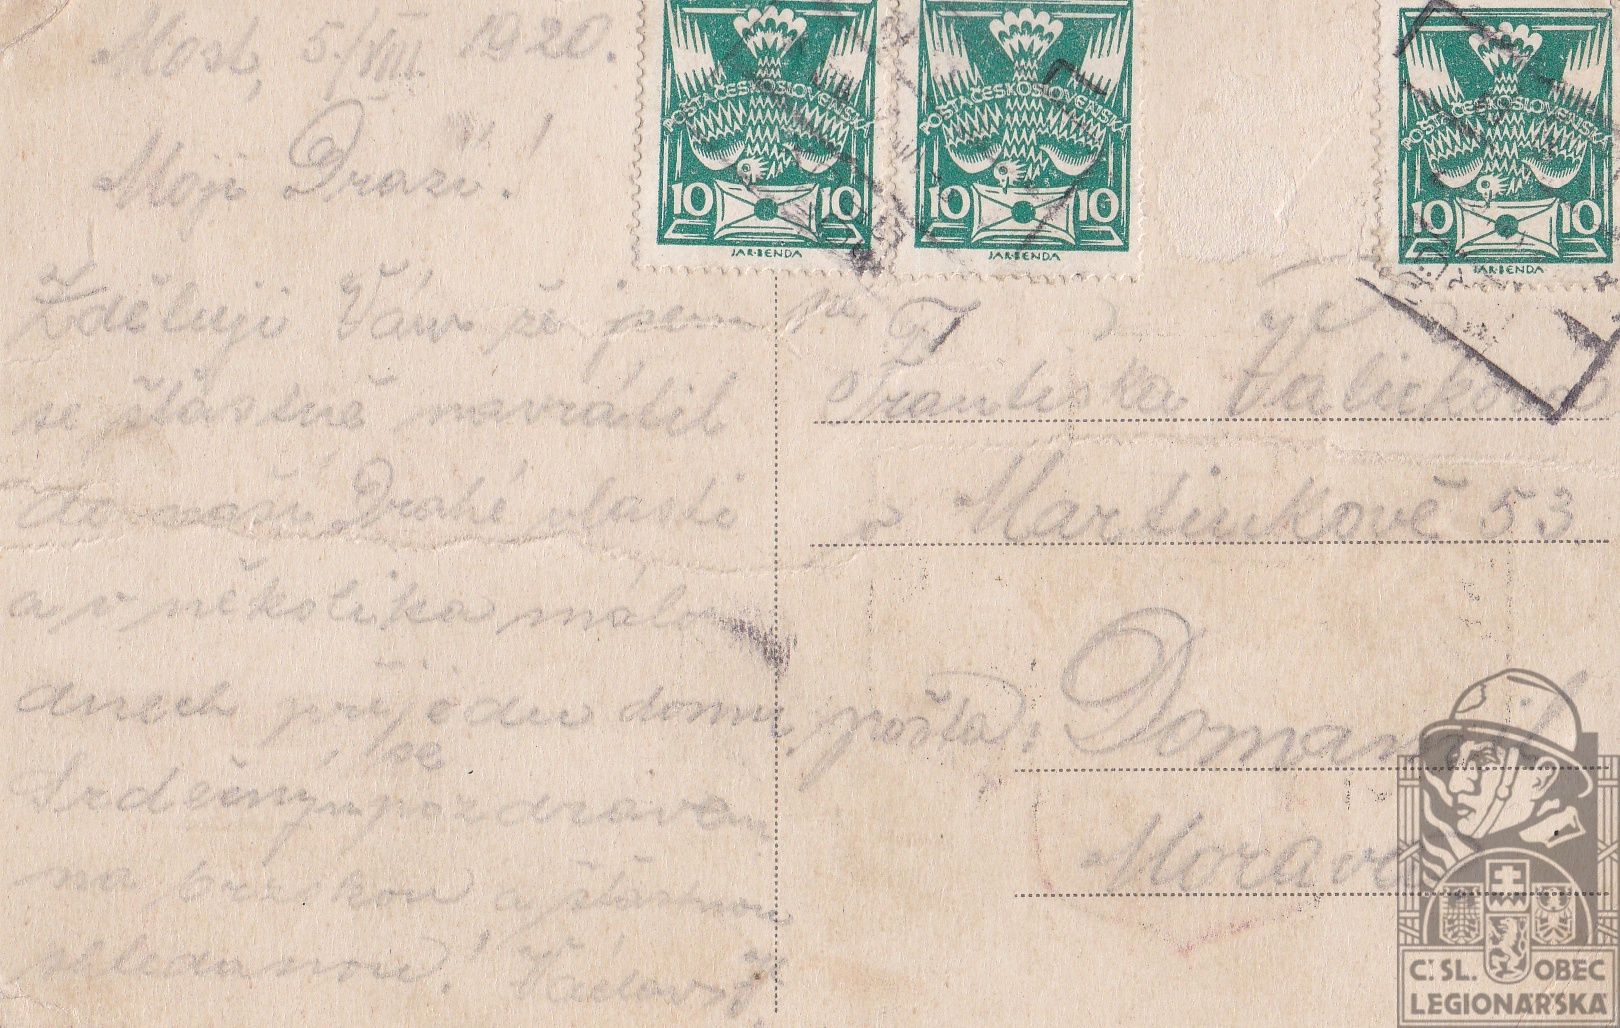 Most, 5/VIII. 1920.
Moji Drazí!
Zděluji Vám že jsem
se štastně navrátil
do naší Drahé vlasti
a v několika malo
dnech přijedu domu,
se
Srdečným pozdravem
na brzskou a štastnou
shledanou! Václav
POŠTA ČESKOSLOVENSKÁ
10 10
JAR·BENDA
POŠTA ČESKOSLOVENSKÁ
10 10
JAR·BENDA
POŠTA ČESKOSLOVENSKÁ
10 10
JAR·BENDA
Františka
Martinkově 53
pošta: Domamil
Morava
Č: SL. OBEC
LEGIONÁŘSKÁ